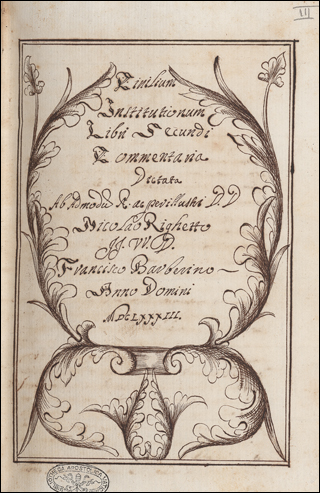 III
Civilium
Institutionum
Libri Secundi
Commentaria
Dictata
Ab Admodū R. ac perillustri D. D
Nicolao Righetto
JJ. V. D.
Francisco Barberino
Anno Domini
MDCLXXXIII.
APOSTOLICA